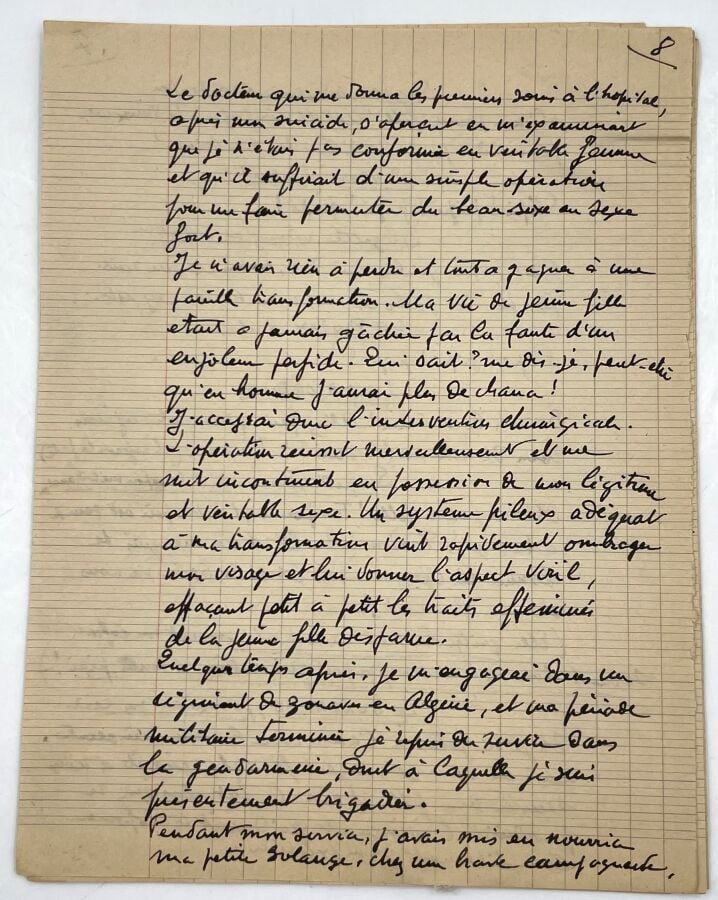 8
Le docteur qui me donna les premiers soins à l'hopital,
après mon suicide, s'aperçut en m'examinant
que je n'étais pas conformée en véritable femme
et qu'il suffirait d'une simple opération
pour me faire permuter du beau sexe au sexe
fort.
Je n'avais rien à perdre et tout a gagner à une
pareille transformation. Ma vie de jeune fille
etait a jamais gâchée par la faute d'un
enjoleur perfide. Qui sait? me dis-je, peut-etre
qu'en homme j'aurai plus de chance!
J'acceptai donc l'intervention chirurgicale.
L'opération réussit merveilleusement et me
mit incontinent en possession de mon légitime
et véritable sexe. Un système pileux adéquat
à ma transformation vint rapidement ombrager
mon visage et lui donner l'aspect viril,
effaçant petit à petit les traits efféminés
de la jeune fille disparue.
Quelque temps après, je m'engageai dans un
régiment de zouaves en Algérie, et ma période
militaire terminée je repris du service dans
la gendarmerie, dont à laquelle je suis
présentement brigadier.
Pendant mon service, j'avais mis en nourrice
ma petite Solange, chez une brave campagnarde,